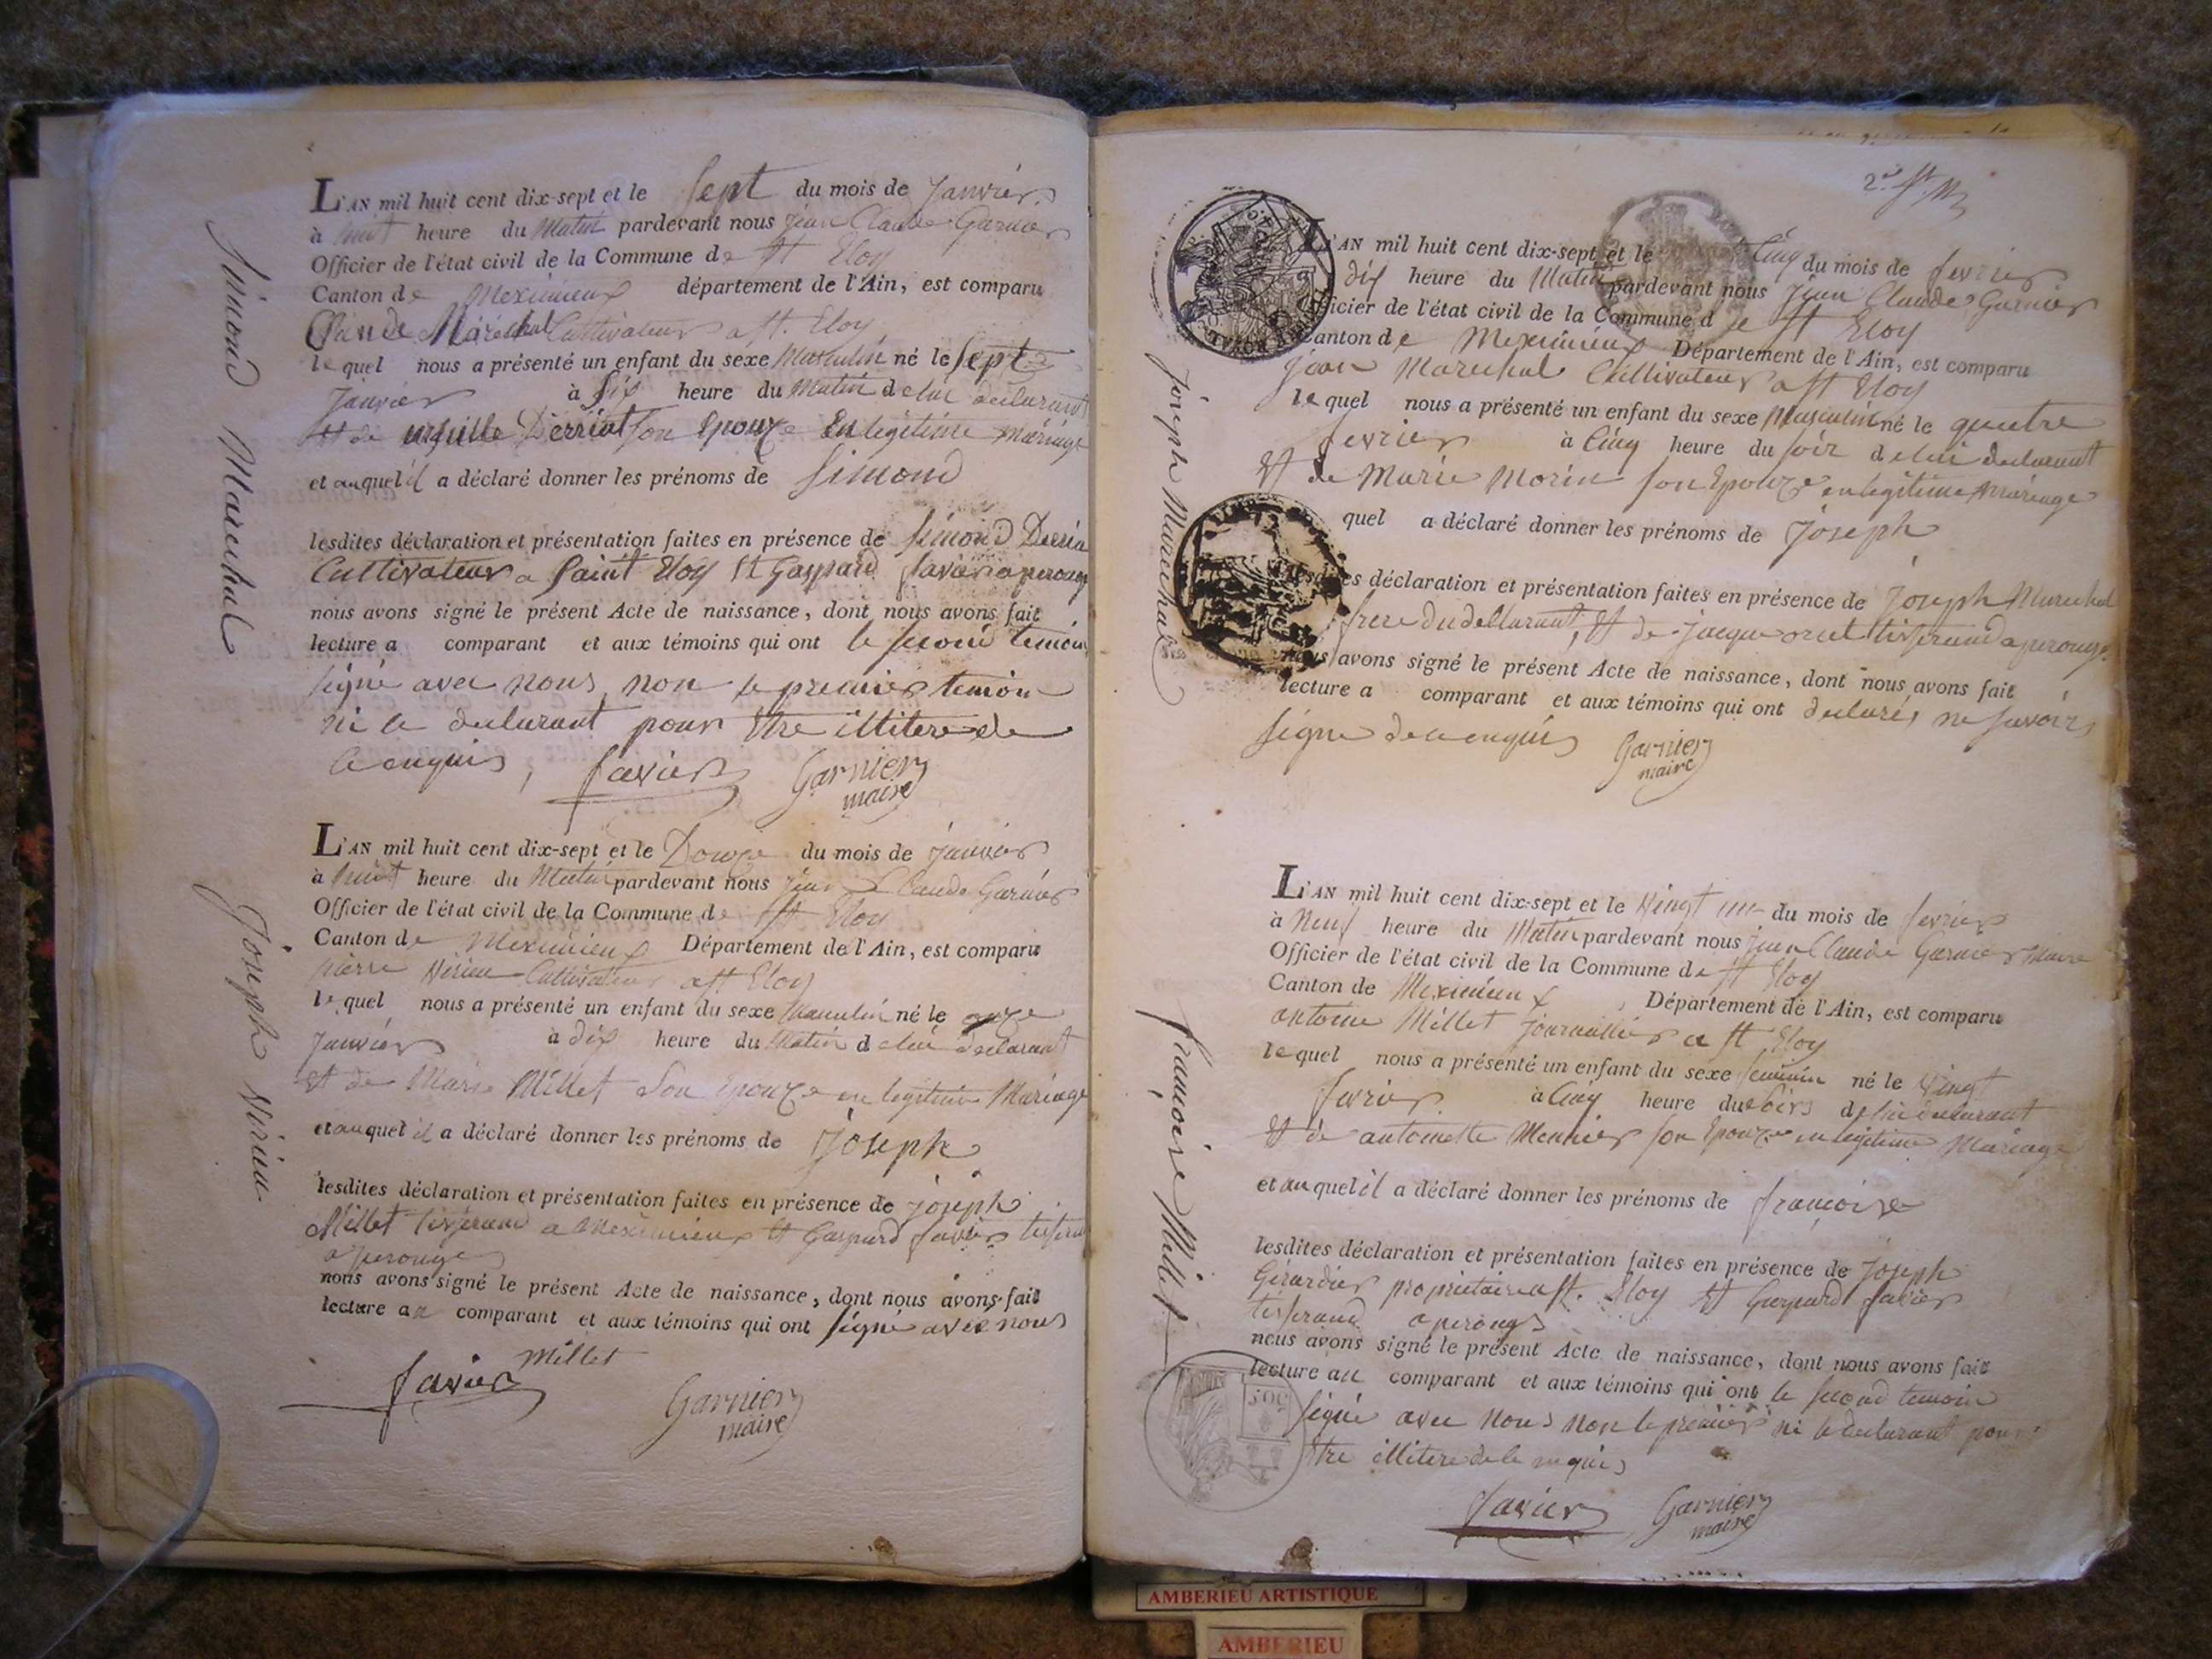 Simond Marechal
L'AN mil huit cent dix-sept et le Sept du mois de Janvier
à huit heure du Matin pardevant nous jean Claude Garnier
Officier de l'état civil de la Commune de St Eloy
Canton de Meximieux département de l'Ain, est comparu
Claude Maréchal Cultivateur a St. Eloy
le quel nous a présenté un enfant du sexe Masculin né le Sept
Janvier à Six heure du Matin de lui declarant
Et de ursulle Derriat son Epouze En legitime Mariage
et auquel il a déclaré donner les prénoms de Simond
lesdites déclaration et présentation faites en présence de Simond
Cultivateur a Saint Eloy Et Gaspard favier a perouge
nous avons signé le présent Acte de naissance, dont nous avons fait
lecture a comparant et aux témoins qui ont le second temoin
signé avec nous non le premier temoin
ni le declarant pour Etre illitere de
ce enquis, favier Garnier
maire
Joseph Virieu
L'AN mil huit cent dix-sept et le Douze du mois de janvier
à huit heure du Matin pardevant nous jean Claude Garnier
Officier de l'état civil de la Commune de St Eloy
Canton de Meximieux Département de l'Ain, est comparu
pierre Virieu Cultivateur a St Eloy
le quel nous a présenté un enfant du sexe Masculin né le onze
Janvier à dix heure du Matin de lui declarant
Et de Marie Millet Son Epouze en legitime Mariage
et auquel il a déclaré donner les prénoms de Joseph
lesdites déclaration et présentation faites en présence de joseph
Millet tisserand a Meximieux Et Gaspard favier
a perouge
nous avons signé le présent Acte de naissance, dont nous avons fait
lecture au comparant et aux témoins qui ont signé avec nous
Millet
favier Garnier
maire
Joseph Marechal
L'AN mil huit cent dix-sept et le Cinq du mois de fevrier
dix heure du Matin pardevant nous Jean Claude Garnier
Officier de l'état civil de la Commune de St Eloy
Canton de Meximieux Département de l'Ain, est comparu
jean Marechal Cultivateur a St Eloy
le quel nous a présenté un enfant du sexe Masculin né le quatre
fevrier à Cinq heure du soir de lui declarant
Et de Marie Morin son Epouze en legitime Mariage
quel a déclaré donner les prénoms de Joseph
lesdites déclaration et présentation faites en présence de Joseph Marechal
frere du declarant, Et de jacque tisserand a perouge
nous avons signé le présent Acte de naissance, dont nous avons fait
lecture a comparant et aux témoins qui ont declarés ne savoir
signe de ce enquis Garnier
maire
françoise Millet
L'AN mil huit cent dix-sept et le Vingt un du mois de fevrier
à Neuf heure du Matin pardevant nous jean Claude Garnier Maire
Officier de l'état civil de la Commune de St Eloy
Canton de Meximieux, Département de l'Ain, est comparu
antoine Millet journallier a St Eloy
le quel nous a présenté un enfant du sexe feminin né le Vingt
fevrier à Cinq heure du soir de lui declarant
Et de antoinette Monnier son Epouze en legitime Mariage
et au quel il a déclaré donner les prénoms de françoise
lesdites déclaration et présentation faites en présence de Joseph
Girardier proprietaire a St. Eloy Et Gaspard favier
tisserand a perouge
nous avons signé le présent Acte de naissance, dont nous avons fait
lecture au comparant et aux témoins qui ont le second temoin
signé avec nous non le premier ni le declarant pour
Etre illitere de ce enquis
favier Garnier
maire
50C
AMBERIEU ARTISTIQUE
AMBERIEU